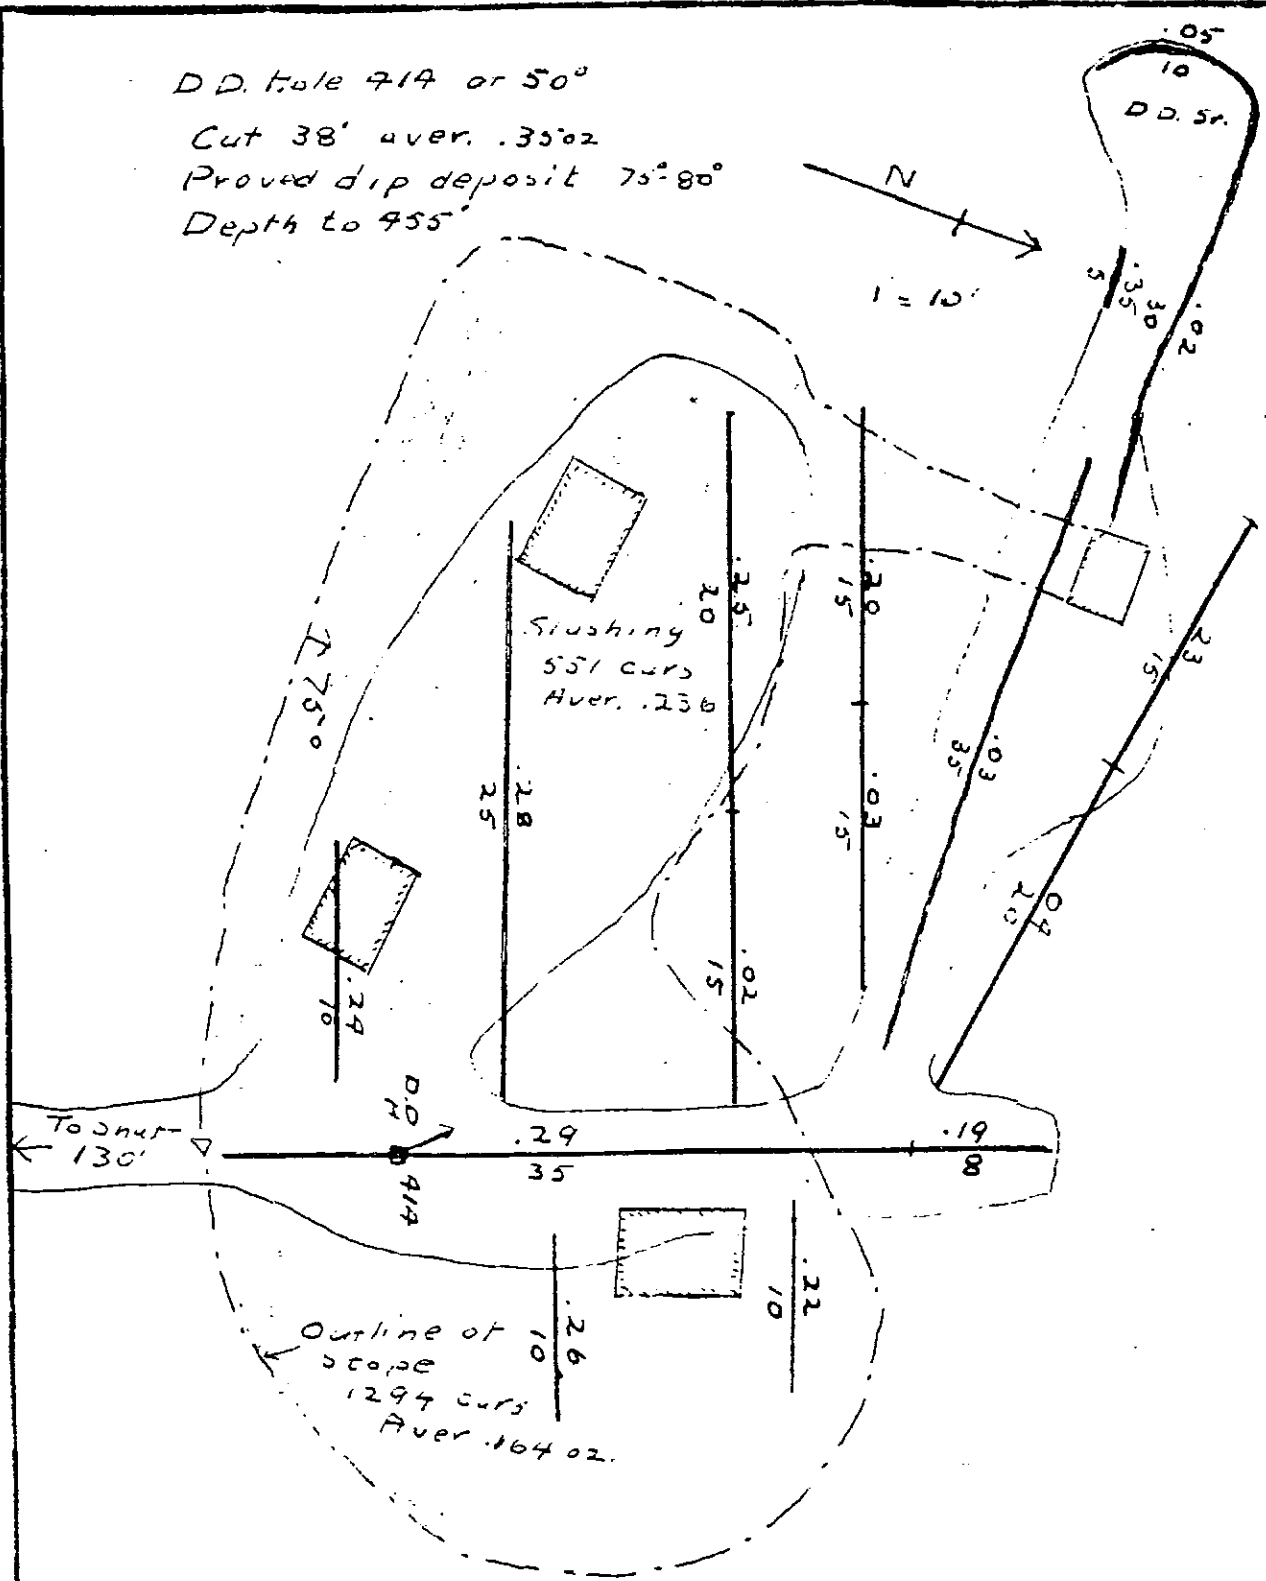 D.D. Hole 414 at 50°
Cut 38' aver. .35oz
Proved dip deposit 75°-80°
Depth to 455'
N
1 = 10'
.05
10
D.D. St.
.35
5
.02
30
.25
20
.20
15
Slushing
551 cars
Aver. .236
75°
.28
25
.03
15
.03
35
.23
15
.04
20
.24
10
.02
15
D.D.
H
414
To shaft
130'
.29
35
.19
8
.26
10
.22
10
Outline of
stope
1294 cars
Aver .164 oz.